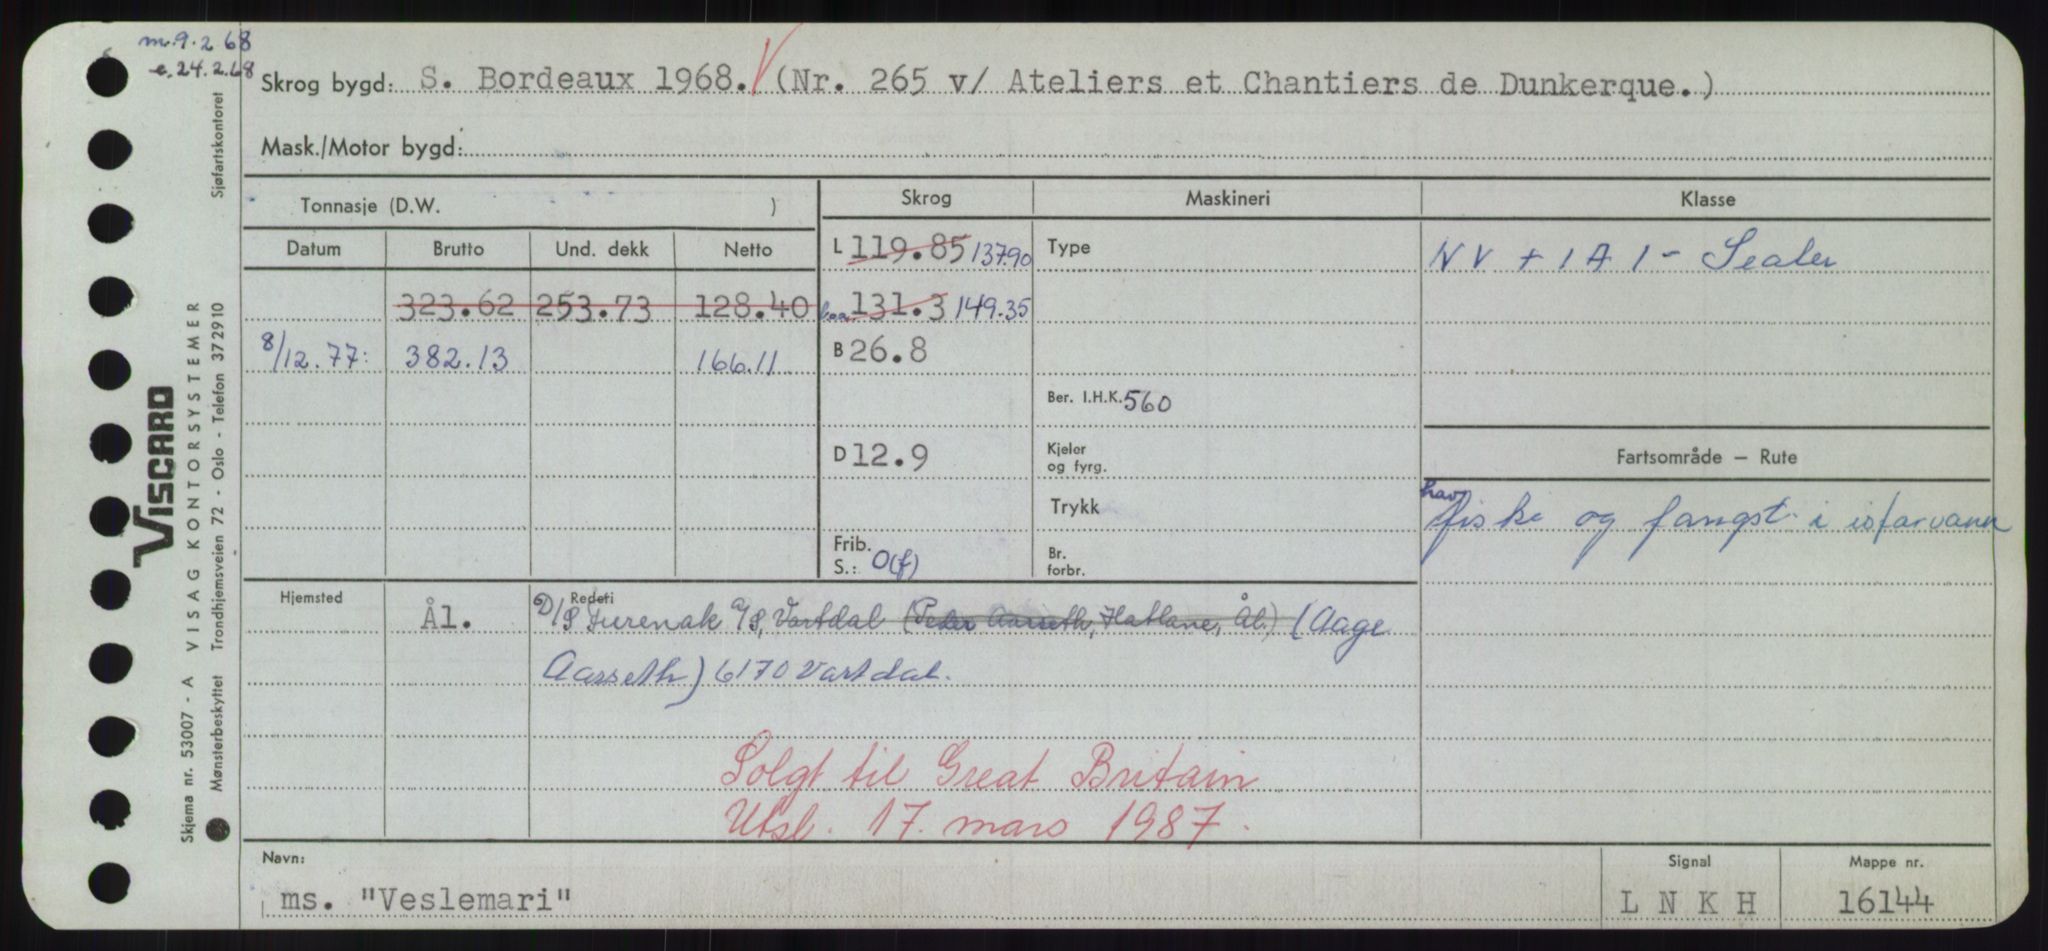 m. 9.2 68
e. 24.2.68
Skrog bygd: S. Bordeaux 1968. V (Nr. 265 v/ Ateliers et Chantiers de Dunkerque.)
Mask./Motor bygd:
Tonnasje (D.W. )
Skrog Maskineri Klasse
Datum Brutto Und. dekk Netto
L 119.85 137.90 Type
NV + 1A1 - Sealer
323.62 253.73 128.40
loa 131.3 149.35
8/12.77: 382.13 166.11
B 26.8
Ber. I.H.K. 560
D 12.9
Kjeler
og fyrg.
Fartsområde — Rute
Trykk
hav
fiske og fangst i isfarvann
Frib.
S.: 0(f)
Br.
forbr.
Hjemsted Rederi
Ål. D/S Furenak A/S, Vartdal (Peder Aarseth, Hatlane, Ål.) (Aage
Aarseth) 6170 Vartdal.
Solgt til Great Britain
Utsl. 17. mars 1987.
Navn: Signal Mappe nr.
ms. "Veslemari" L N K H 16144
VISCARD
Skjema nr. 53007 - A VISAG KONTORSYSTEMER
Mønsterbeskyttet Trondhjemsveien 72 - Oslo - Telefon 372910 Sjøfartskontoret